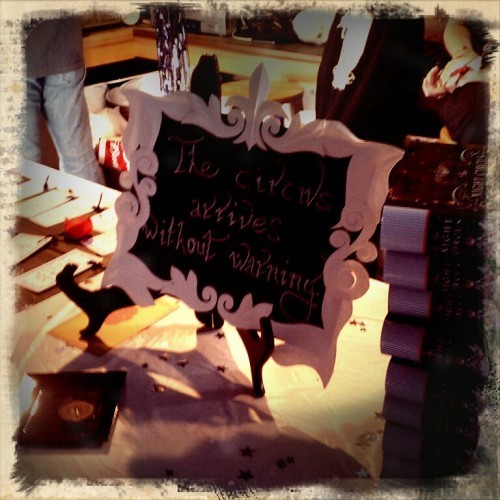 The circus
arrives
without warning